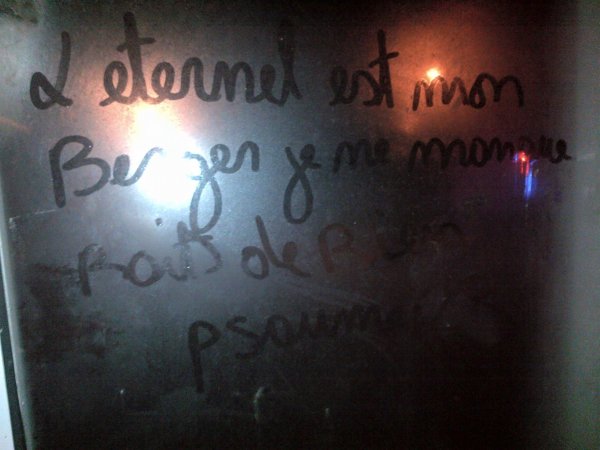 L'eternel est mon
Berger je ne manque
Rais de Rien
psaume